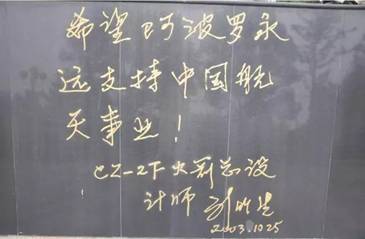 希望阿波罗永
远支持中国航
天事业！
CZ-2F火箭总设
计师 刘竹生
2003.10.25